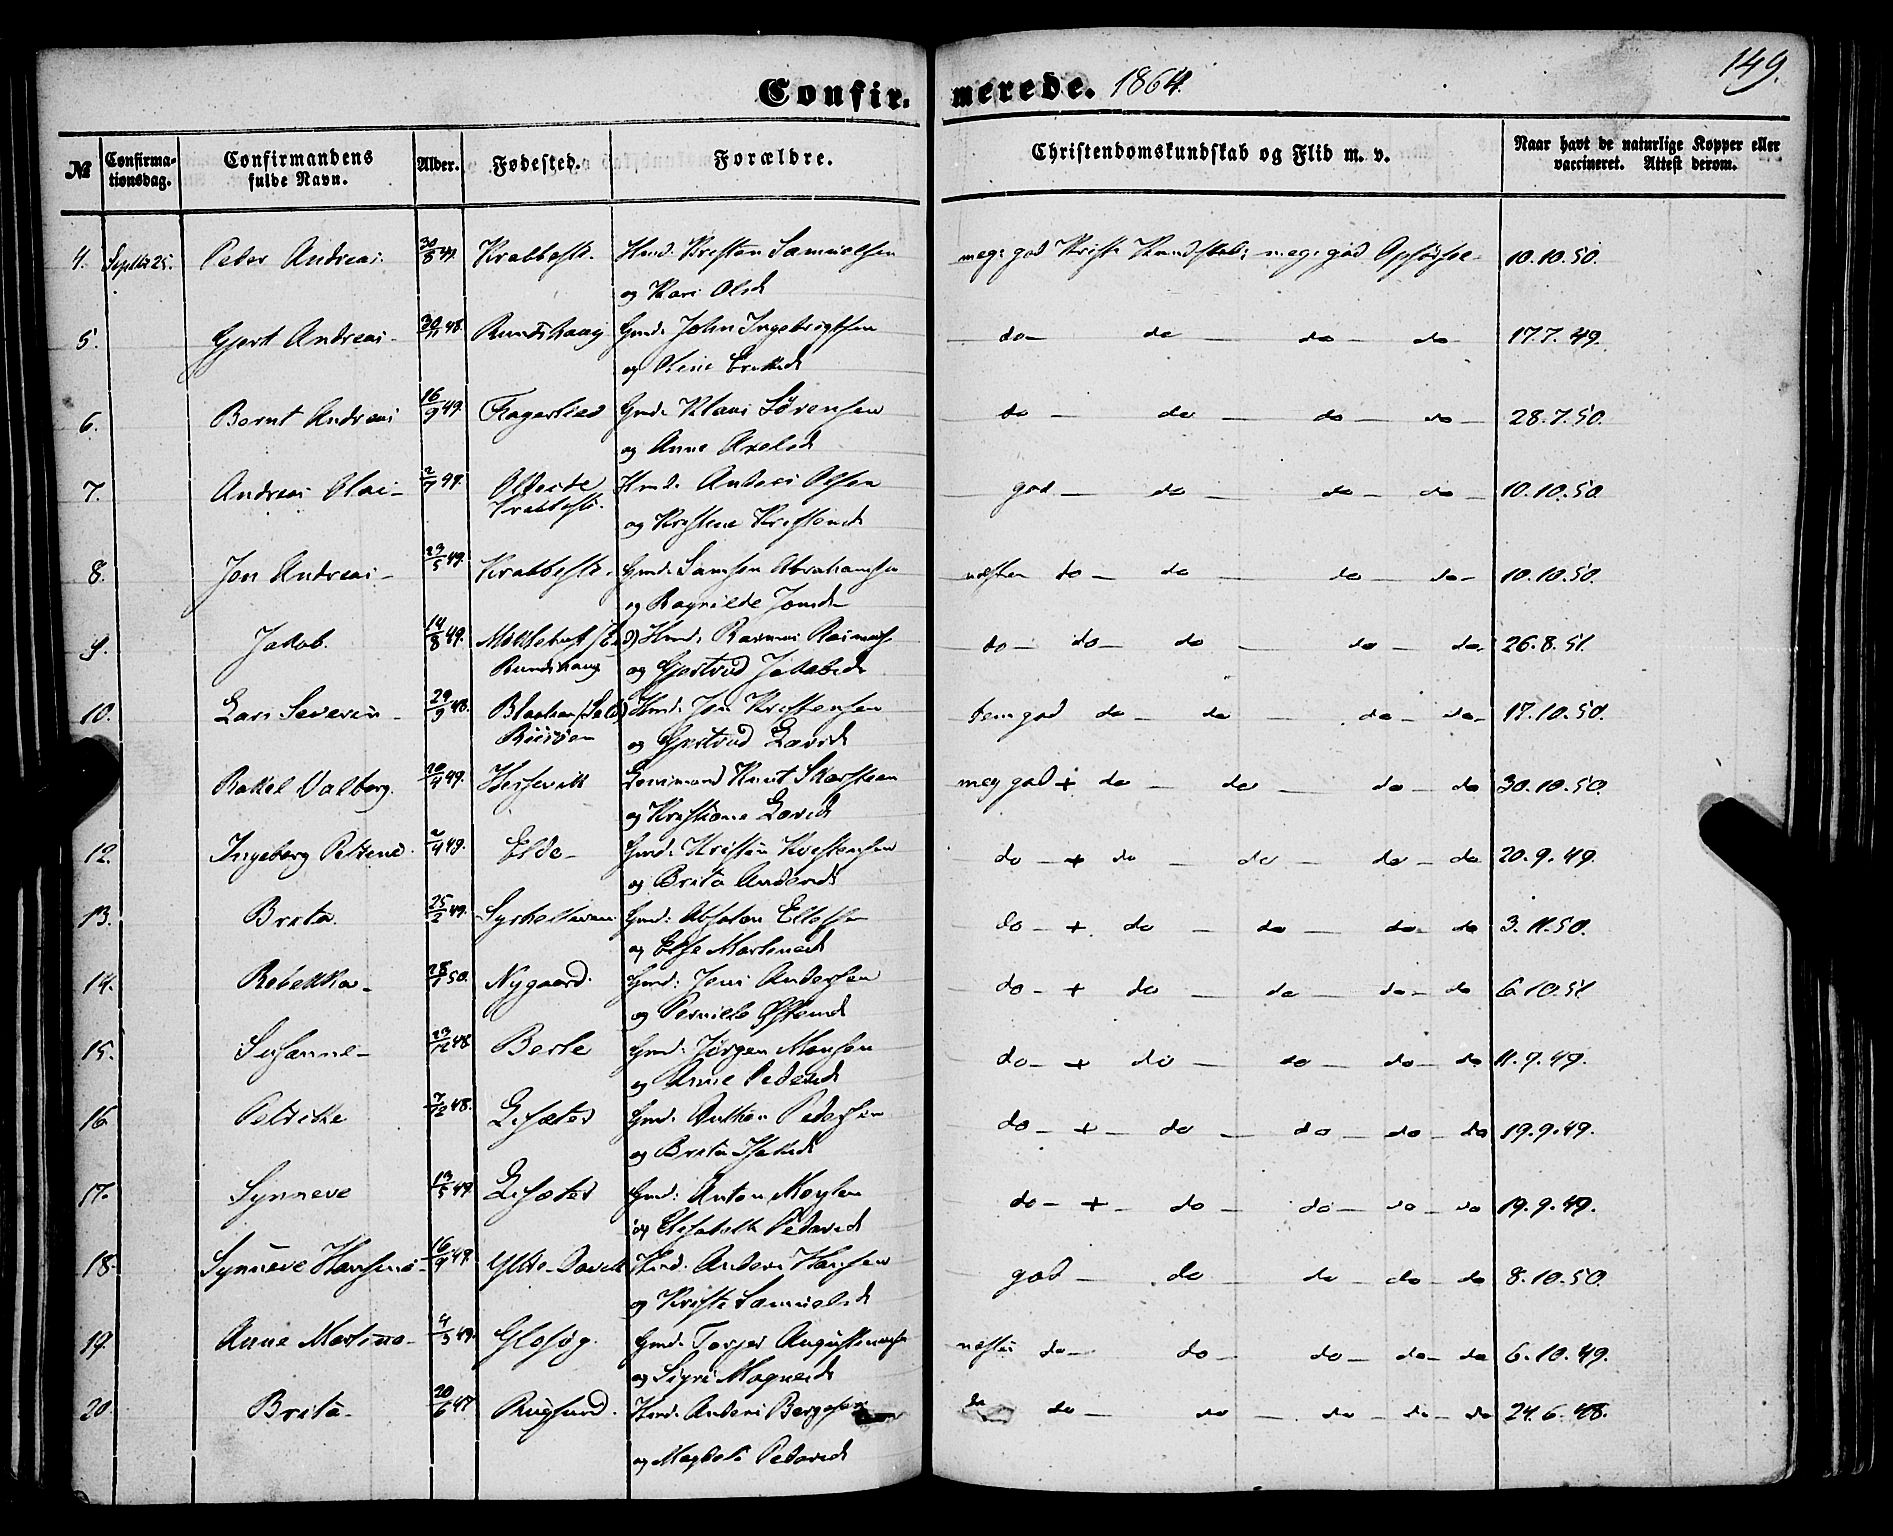 149.
Confirmerede. 1864.
№ Confirmationsdag. Confirmandens fulde Navn. Alder. Fødested. Forældre. Christendomskundskab og Flid m. v. Naar havt de naturlige Kopper eller vaccineret. Attest derom.
4. Septbr 25. Peder Andreas. 49. Krabbest. Hmd. Kristen Samuelsen meg: god Krist: Kundskab: meg: god Opførsel - 10.10.50.
og Kari Olsd
5. Gjert Andreas - 30/11 48. Rundshaug Gmd. John Ingebrigtsen do - do - do - do - 17.7.49.
og Oline
6. Bernt Andreas 16/9 49. Fagerlien Gmd. Klaus Sørensen do - do - do - do - 28.7.50.
og Anne Axelsd
7. Andreas Olai - 49. Krabbest. Hmd. Anders Olsen god - do - do - do - 10.10.50
og Kristine Kristensd
8. Jon Andreas - 23/5 49. Krabbest. Gmd. Samson Abrahamsen næsten do - do - do - do - 10.10.50.
og Ragnilde Jonsd -
9. Jakob. 14/8 49. Hmd. Rasmus Rasmuss. do - do - do - do - do - 26.8.51.
Rundshaug og Gjertrud Jakobsd
10. Lars Severin - 29/9 48. Hmd. Jon Kristensen temgod do - do - do - do - 17.10.50.
og Gjertrud Larsd
Rakel Valborg. 49. Hessevik Knut Skarsteen meg god + do - do - do - do 30.10.50.
og Kristiane Larsd
12. Ingeborg 49. Elde - Gmd. Kristen Kristensen do - + do - do - do - do 20.9.49.
og Brita Andersd
13. Brita. 25/2 49. Gmd. Absalon Ellefsen do - + do - do - do - do 3.11.50.
og Else Martinsd
14. Rebekka - 50. Nygaard. Gmd. Jens Andersen do - + do - do - do - do 6.10.51
og Pernille
15. Susanne - 23/12 48. Berle Gmd. Jørgen Monsen do - + do - do - do - do 11.9.49.
og Anne Pedersd
16. Petrikke 7/12 48. Lisæter Gmd. Anthon Pedersen do - + - do - do - do - do 19.9.49.
og Brita
17. Synneve 13/5 49. Lisæter Gmd. Anton do - + - do - do - do - do 19.9.49.
og Elisabeth Pedersd
18. Synneve Hansine - 16/9 49. Hmd. Anders Hansen god - do - do - do - do 8.10.50.
og Samuelsd
19. Anne Martina - 4/3 49. Gmd. Torger næsten do - do - do - do - do 6.10.49.
og Siri Magnesd
20. Brita - 20/6 47 Rugsund. Hmd. Anders do do - do - do - do - do 24.6.48.
og Pedersd